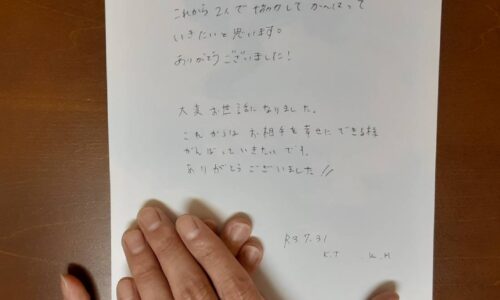 これから2人で協力して がんばって
いきたいと思います。
ありがとうございました!
大変お世話になりました。
これからは お相手を幸せにできる様
がんばっていきたいです。
ありがとうございました!!
R3.7.31
K.T K.M